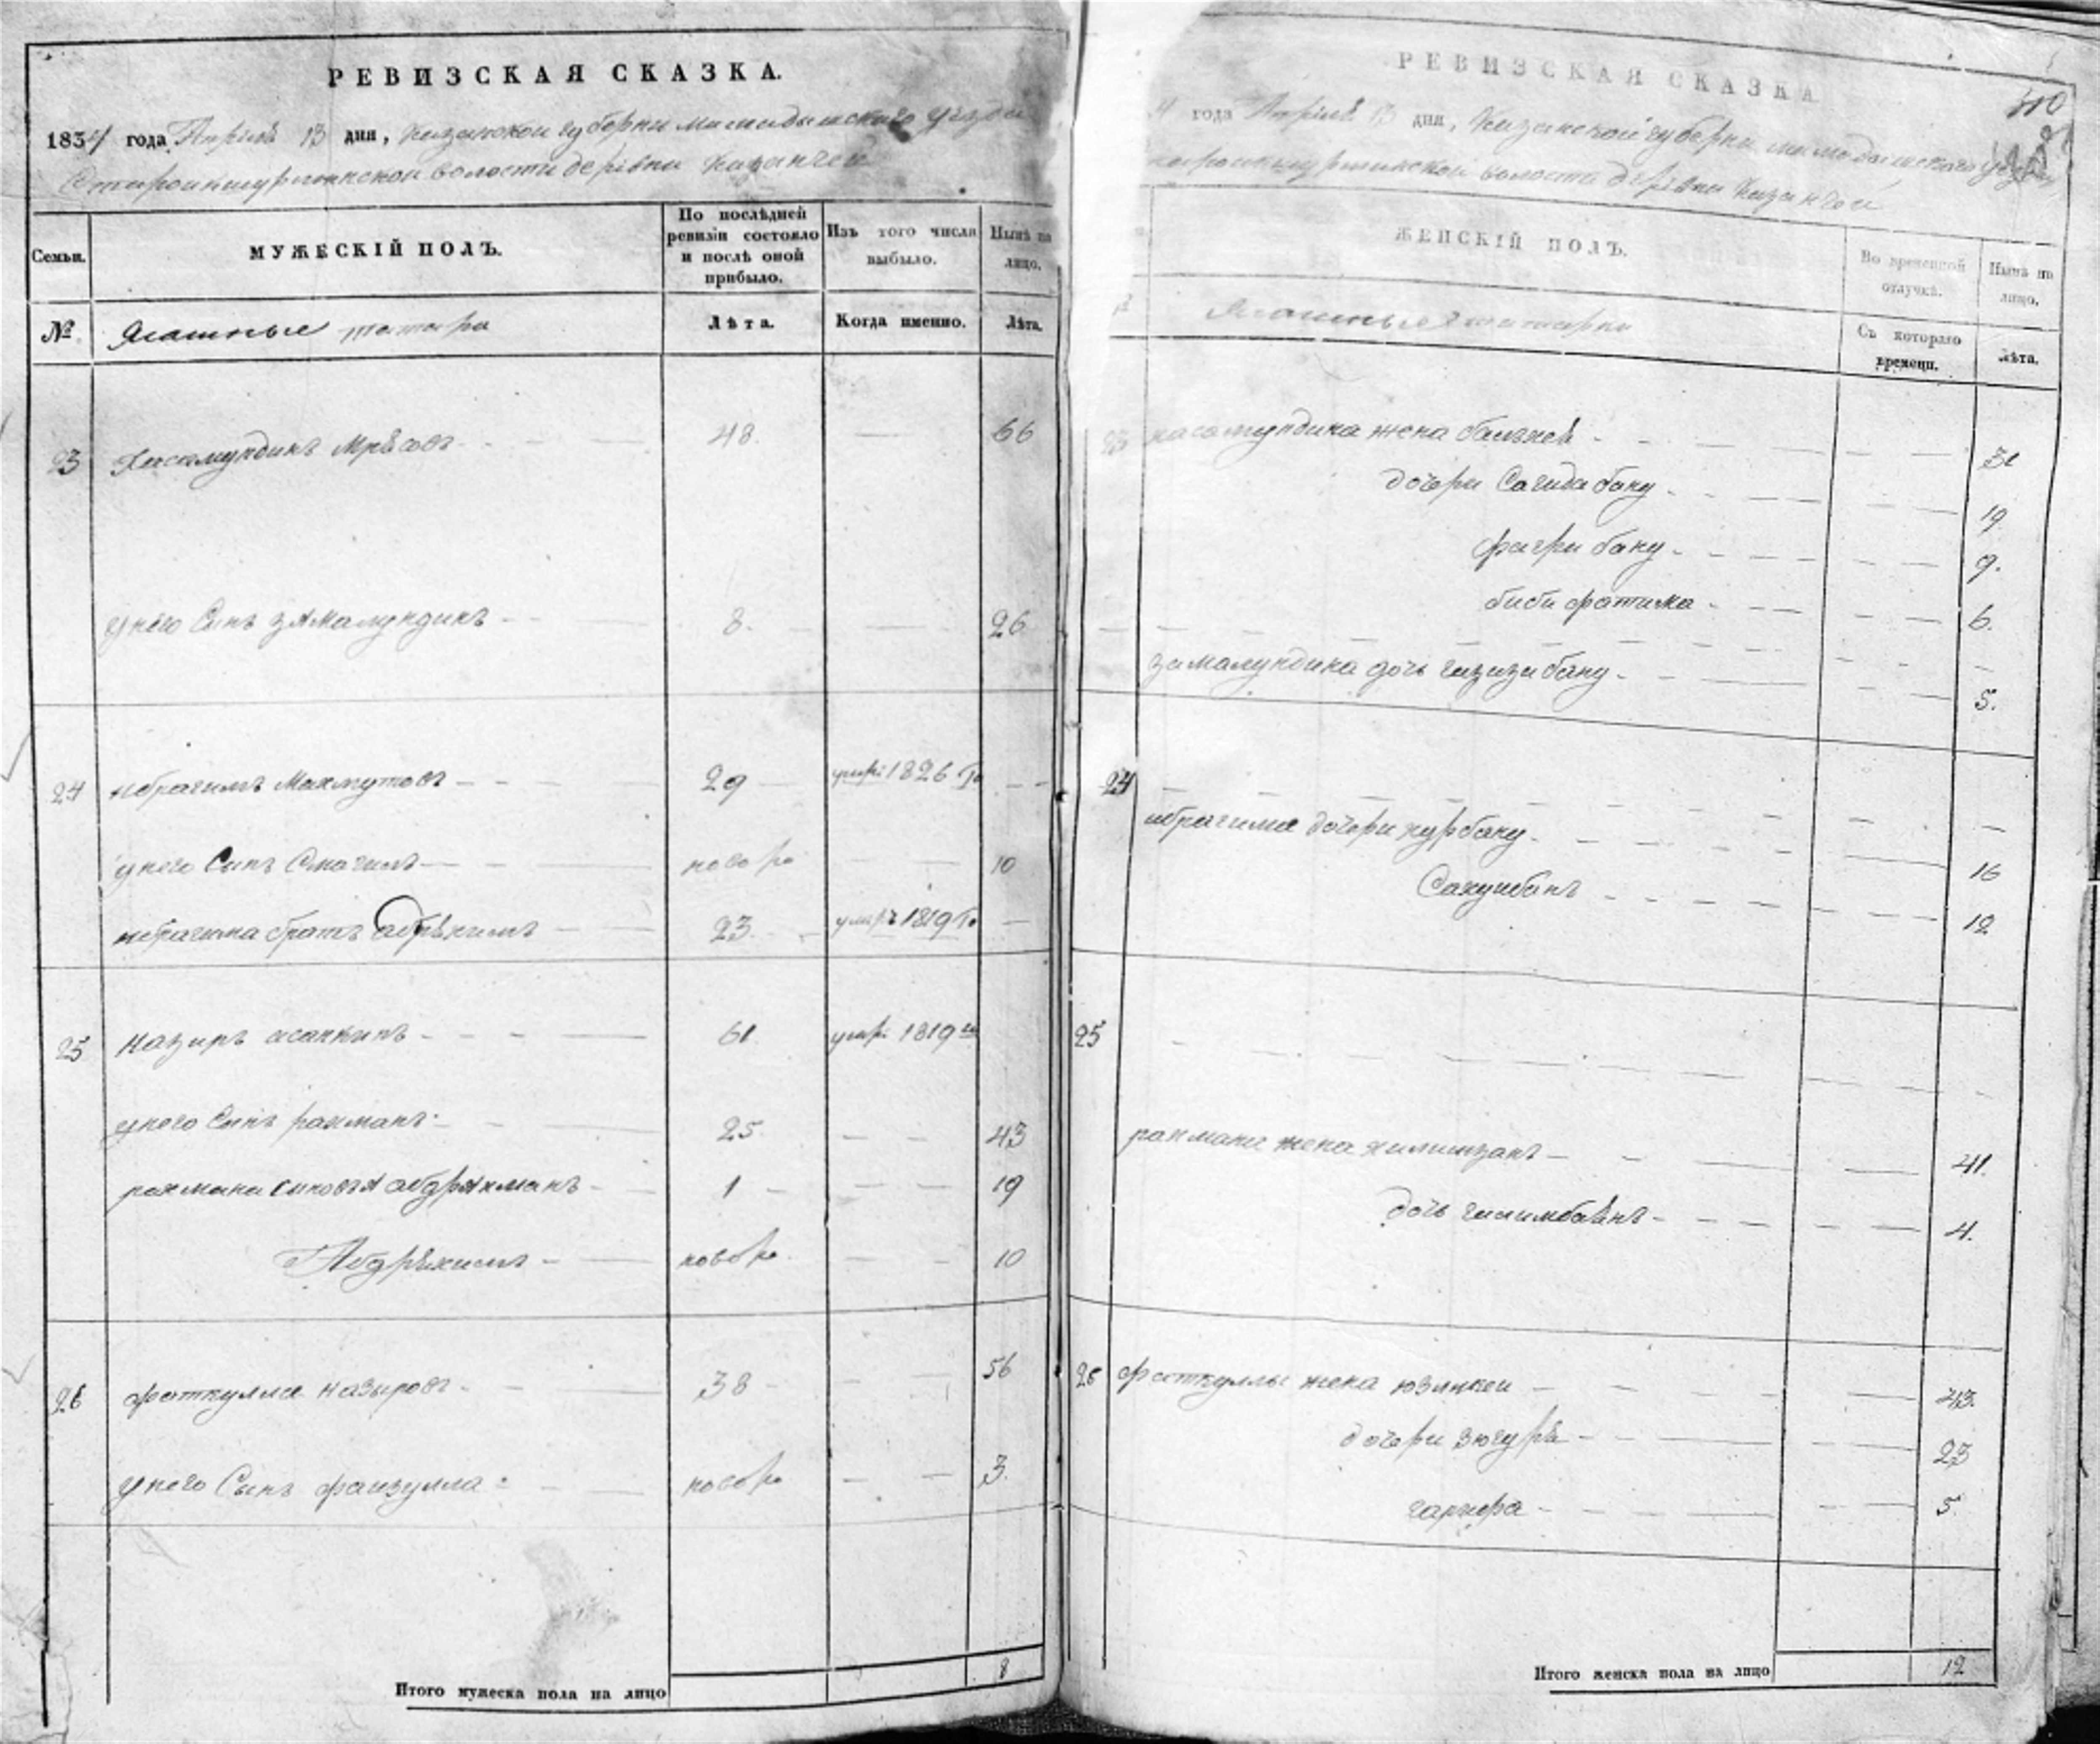 РЕВИЗСКАЯ СКАЗКА.
1834 года Апреля 13 дня, Казанской губерни мамадышского уезда
Старокишурминской волости деревни Казанчей
Семьи.
МУЖЕСКІЙ ПОЛЪ.
По послѣдней ревизіи состояло и послѣ оной прибыло.
Изъ того числа выбыло.
Нынѣ на лицо.
№
Ясашные татары
Лѣта.
Когда именно.
Лѣта.
23 Хисамундинъ Мрясовъ 48. 66
у него Сынъ зямалундинъ 8. 26
24 ибрагимъ Махмутовъ 29 умрѣ 1826 го
у него Сынъ Смагилъ новоро 10
ибрагима братъ абрѣхимъ 23 умеръ 1819 го
25 назиръ асанкинъ 61 умрѣ 1819 го
у него Сынъ рахманъ 25 43
рахмана сыновья абдряхманъ 1 19
Абдрѣхимъ новоро 10
26 фаткулла назыровъ 38 56
у него Сынъ фаизулла новоро 3.
Итого мужеска пола на лицо 8
РЕВИЗСКАЯ СКАЗКА
410
4 года Апреля 13 дня, Казанской губерни мамадышского уезда
волости деревни Казанчей
ЖЕНСКІЙ ПОЛЪ.
Во временной отлучкѣ.
Нынѣ на лицо.
Ясашные татарки
Съ котораго времени.
Лѣта.
23 хасамундина жена 31
дочери Сагида бану 19
фагри бану 9.
биби фатима 6.
замалундина дочь газизи бану 5.
24
ибрагима дочери нурбану 16
12
25
рахмана жена 41.
дочь 4.
26 фаткуллы жена юзликеи 43.
дочери зюгурѣ 23
5
Итого женска пола на лицо 12